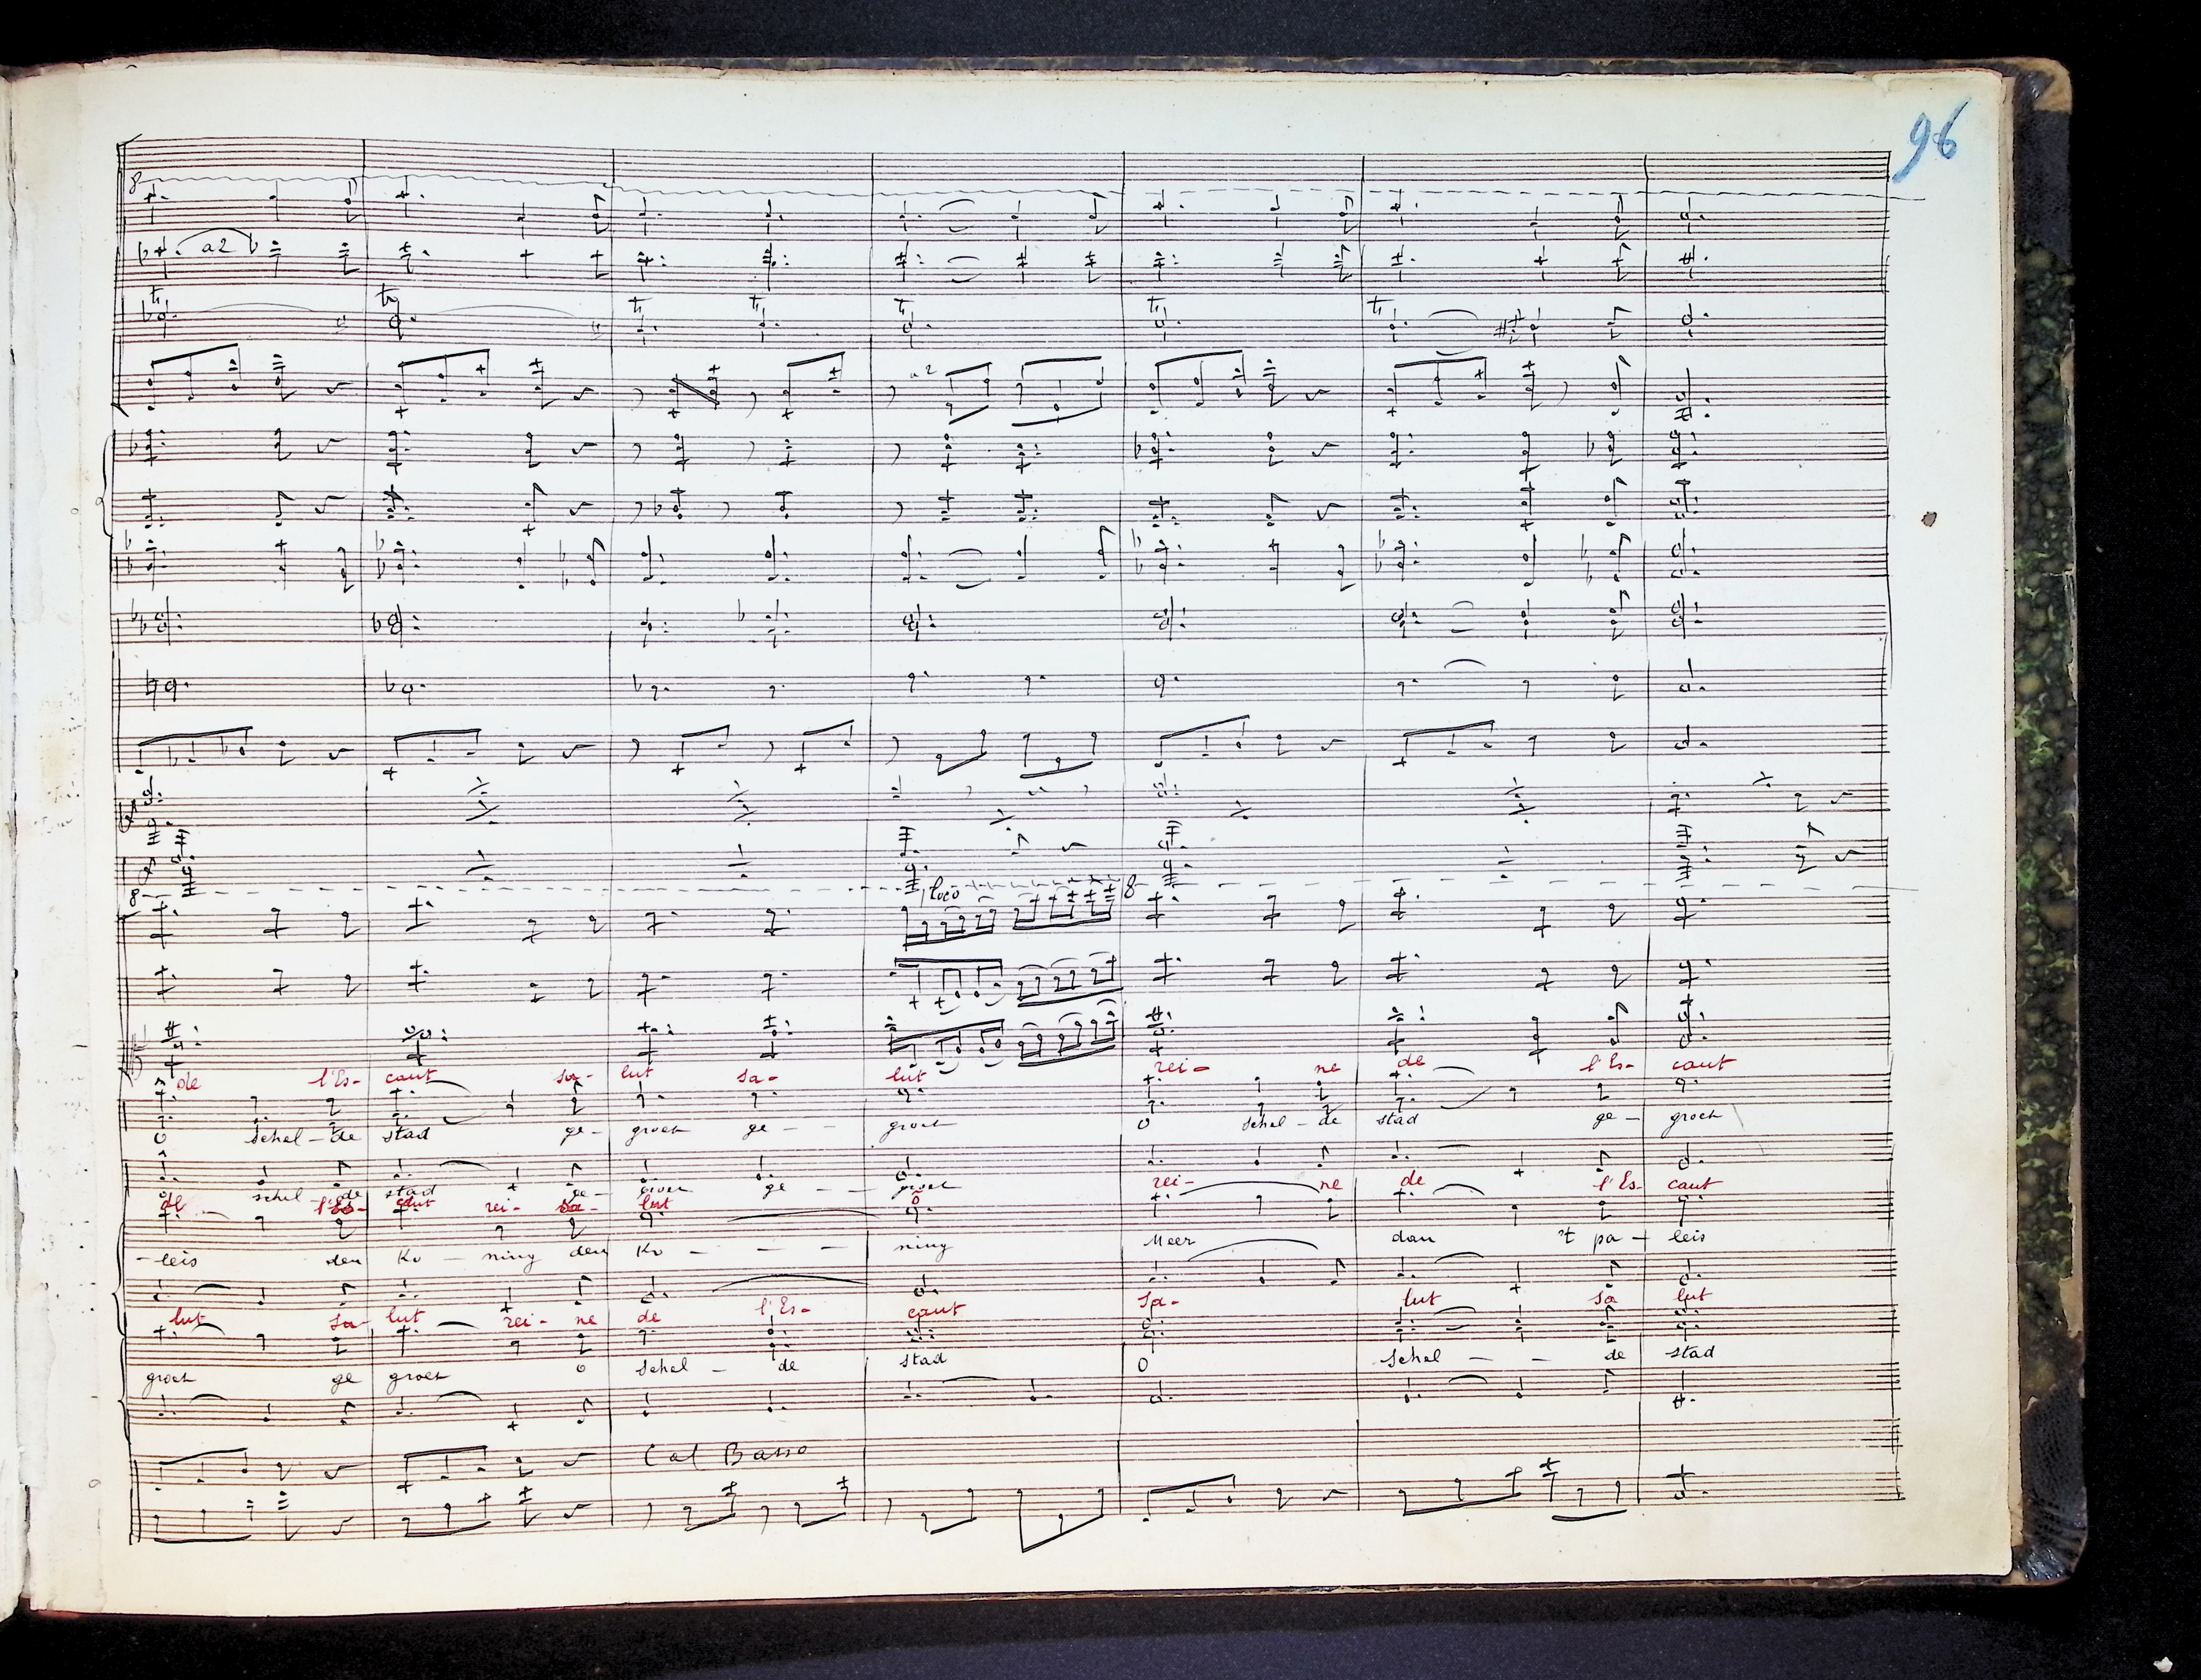 96
8
a2
tr tr tr tr tr tr tr
a2
8 loco 8
de l'Es- caut sa- lut sa- lut rei- ne de l'Es- caut
o schel - de stad ge- groet ge - - groet o schel - de stad ge - groet
schel - de stad ge- groet ge - - groet rei- ne de l'Es- caut
de - l'Es- caut rei- sa- lut ô
- leis den Ko - ning den Ko - - - ning Meer dan 't pa - leis
lut sa- lut rei- ne de l'Es- caut sa- lut sa lut
groet ge groet o schel - de stad O schel - - de stad
Col Basso